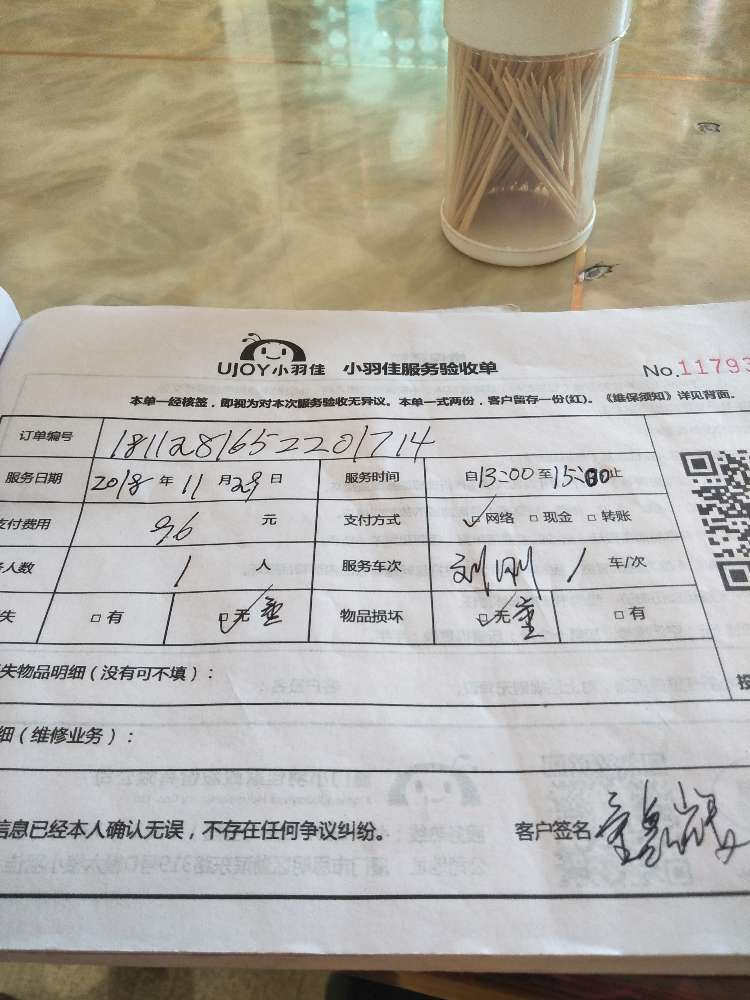 UJOY小羽佳 小羽佳服务验收单 No.11793
本单一经核签，即视为对本次服务验收无异议。本单一式两份，客户留存一份(红)。《维保须知》详见背面。
订单编号 1811281652201714
服务日期 2018年11月29日 服务时间 自13:00至15:00止
支付费用 96元 支付方式 ☑网络 □现金 □转账
人数 1人 服务车次 刘刚 1 车/次
失 □有 ☑无 童 物品损坏 ☑无 童 □有
失物品明细（没有可不填）：
细（维修业务）：
信息已经本人确认无误，不存在任何争议纠纷。 客户签名